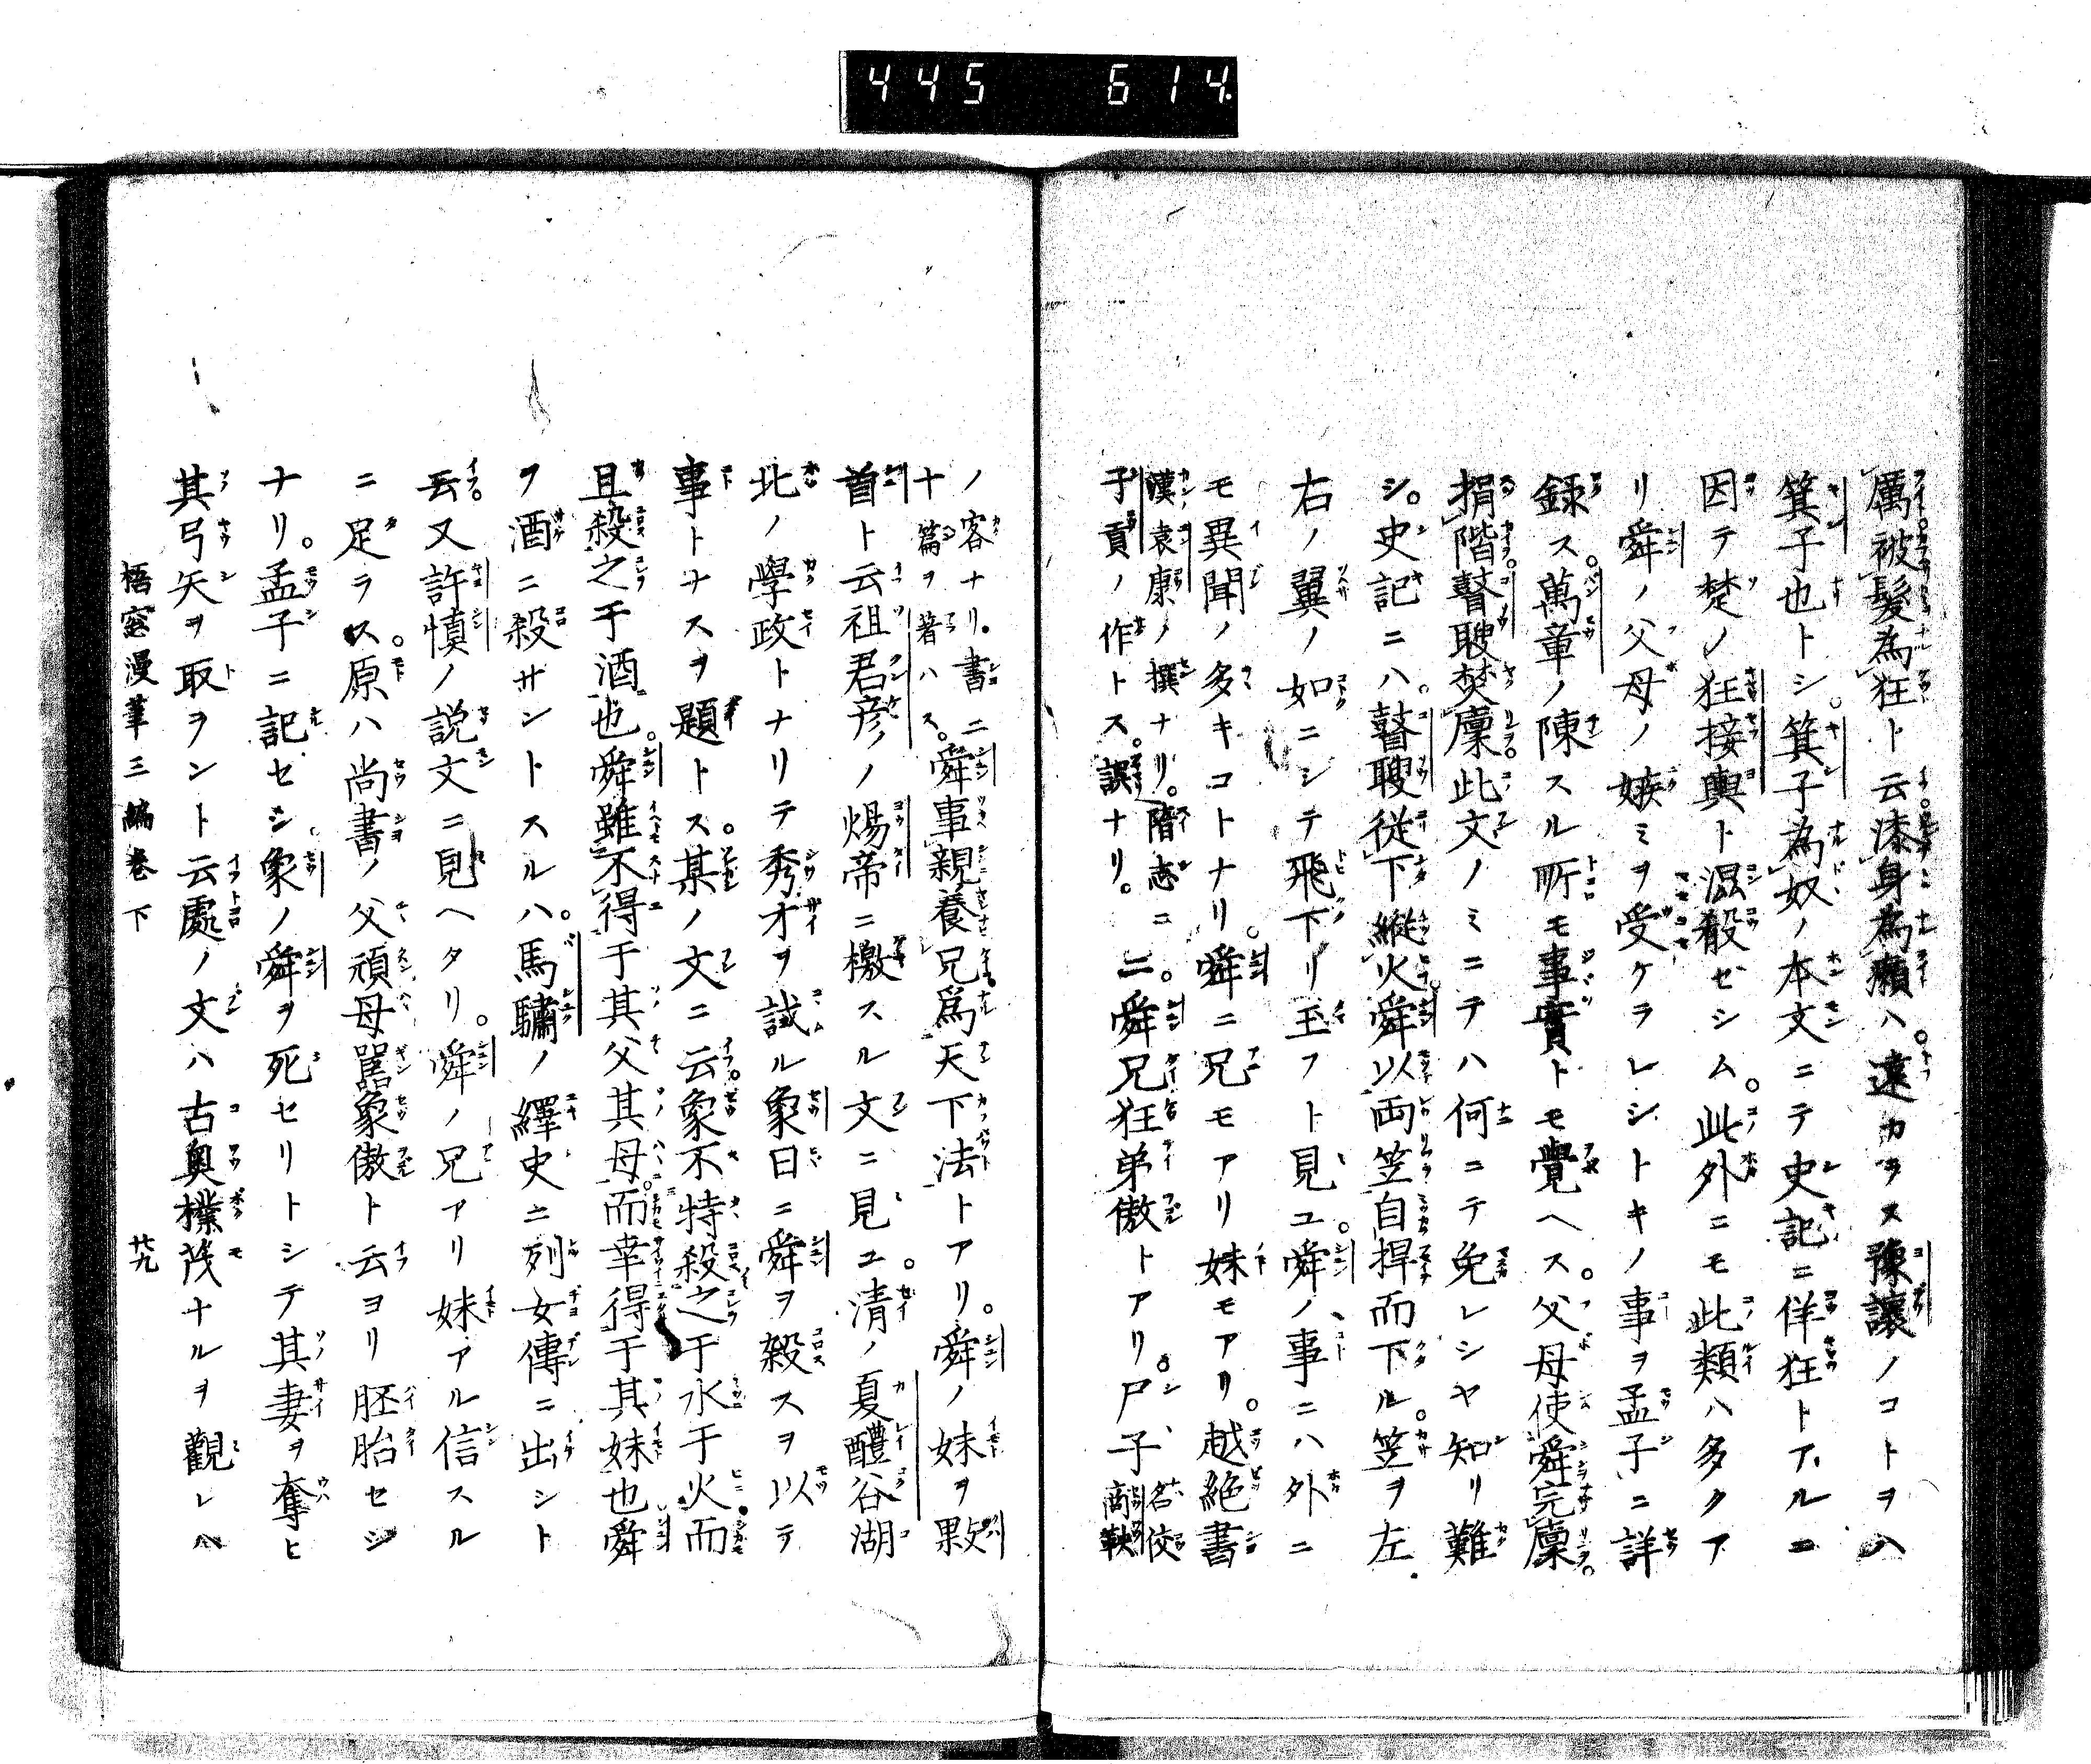 445 614
厲被髮為狂ト云漆身為癩ハ遠カラス豫讓ノコトヲ以
箕子也トシ箕子為奴ノ本文ニテ史記ニ佯狂トアルニ
因テ楚ノ狂接輿ト混殽ゼシム此外ニモ此類ハ多クア
リ舜ノ父母ノ嫉ミヲ受ケラレシトキノ事ヲ孟子ニ詳
録ス萬章ノ陳スル所モ事實トモ覺ヘス父母使舜完廩
捐階瞽瞍焚廩此文ノミニテハ何ニテ免レシヤ知リ難
シ史記ニハ瞽瞍從下縱火舜以両笠自捍而下ル笠ヲ左
右ノ翼ノ如ニシテ飛下リ玉フト見ユ舜ノ事ニハ外ニ
モ異聞ノ多キコトナリ舜ニ兄モアリ妹モアリ越絶書
漢袁康ノ撰ナリ隋志ニ
子貢ノ作トス誤ナリ
二舜兄狂弟傲トアリ尸子
名佼
商鞅
ノ客ナリ書二
十篇ヲ著ハス
舜事親養兄爲天下法トアリ舜ノ妹ヲ敤
首ト云祖君彦ノ煬帝ニ檄スル文ニ見ユ清ノ夏醴谷湖
北ノ學政トナリテ秀才ヲ試ル象日ニ舜ヲ殺スヲ以テ
事トナスヲ題トス某ノ文ニ云象不特殺之于水于火而
且殺之于酒也舜雖不得于其父其母而幸得于其妹也舜
ヲ酒ニ殺サントスルハ馬驌ノ繹史ニ列女傳ニ出シト
云又許慎ノ説文ニ見ヘタリ舜ノ兄アリ妹アル信スル
ニ足ラス原ハ尚書ノ父頑母嚚象傲ト云ヨリ胚胎セシ
ナリ孟子ニ記セシ象ノ舜ヲ死セリトシテ其妻ヲ奪ヒ
其弓矢ヲ取ラント云處ノ文ハ古奥樸茂ナルヲ觀レハ
梧窓漫筆三編巻下 廿九